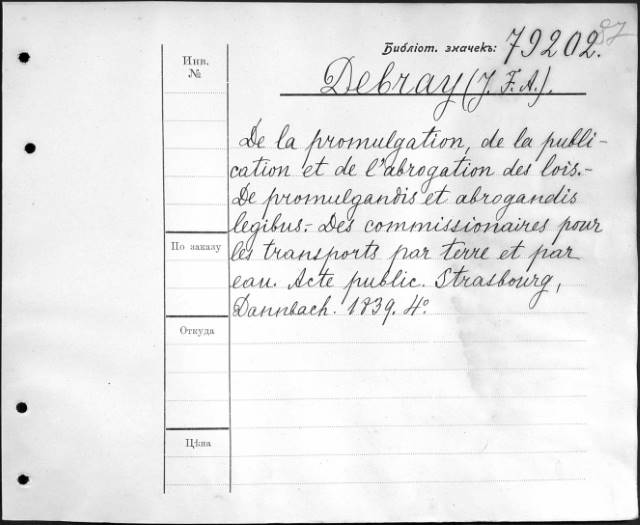 87
Библіот. значекъ: 79202.
Инв.
№
Debray (J. F. A.).
De la promulgation, de la publi-
cation et de l'abrogation des lois.-
De promulgandis et abrogandis
legibus.- Des commissionaires pour
les transports par terre et par
eau. Acte public. Strasbourg,
Dannbach. 1839. 4°.
По заказу
Откуда
Цѣна